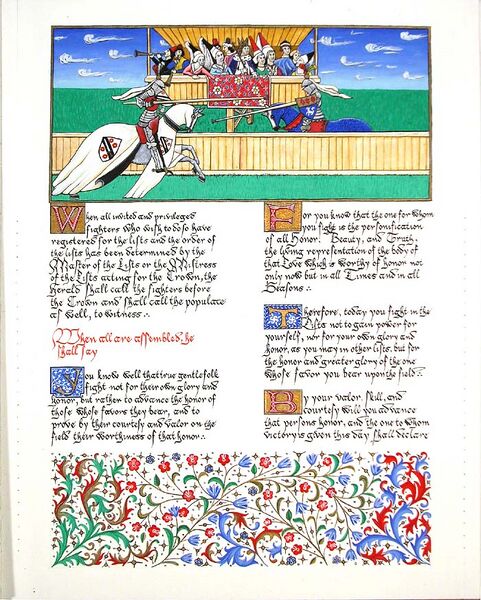 When all invited and privileged
fighters who wish to do so have
registered for the lists and the order of
the lists has been determined by the
Master of the Lists or the Mistress
of the Lists acting for the Crown, the
Herald shall call the fighters before
the Crown and shall call the populace
as well, to witness :.
When all are assembled he
shall say
You know well that true gentlefolk
fight not for their own glory and
honor, but rather to advance the honor of
those whose favors they bear, and to
prove by their courtesy and valor on the
field their worthiness of that honor :.
For you know that the one for whom
you fight is the personification
of all Honor, Beauty, and Truth,
the living representation of the body of
that Love which is worthy of honor not
only now but in all Times and in all
Seasons :.
Therefore, today you fight in the
Lists not to gain power for
yourself, nor for your own glory and
honor, as you may in other lists, but for
the honor and greater glory of the one
whose favor you bear upon the field :.
By your valor, skill, and
courtesy will you advance
that persons honor, and the one to whom
victory is given this day shall declare